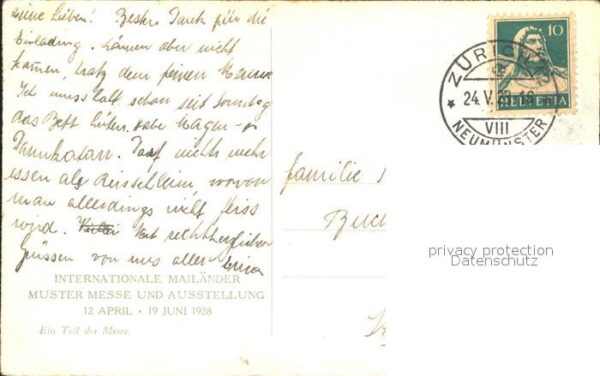 Meine Lieben! Besten Dank für die
Einladung. können aber nicht
kommen, trotz dem feinen Menu
Ich muss halt schon seit Sonntag
das Bett hüten, habe Magen- &
Darmkatarr. Darf nichts mehr
essen als Reisschleim, wovon
man allerdings nicht feiss
wird. Mit recht herzlichen
Grüssen von uns allen Erica
INTERNATIONALE MAILÄNDER
MUSTER MESSE UND AUSSTELLUNG
12 APRIL - 19 JUNI 1928
Ein Teil der Messe.
10
HELVETIA
ZÜRICH
24.V.28
VIII
NEUMÜNSTER
Familie
privacy protection
Datenschutz